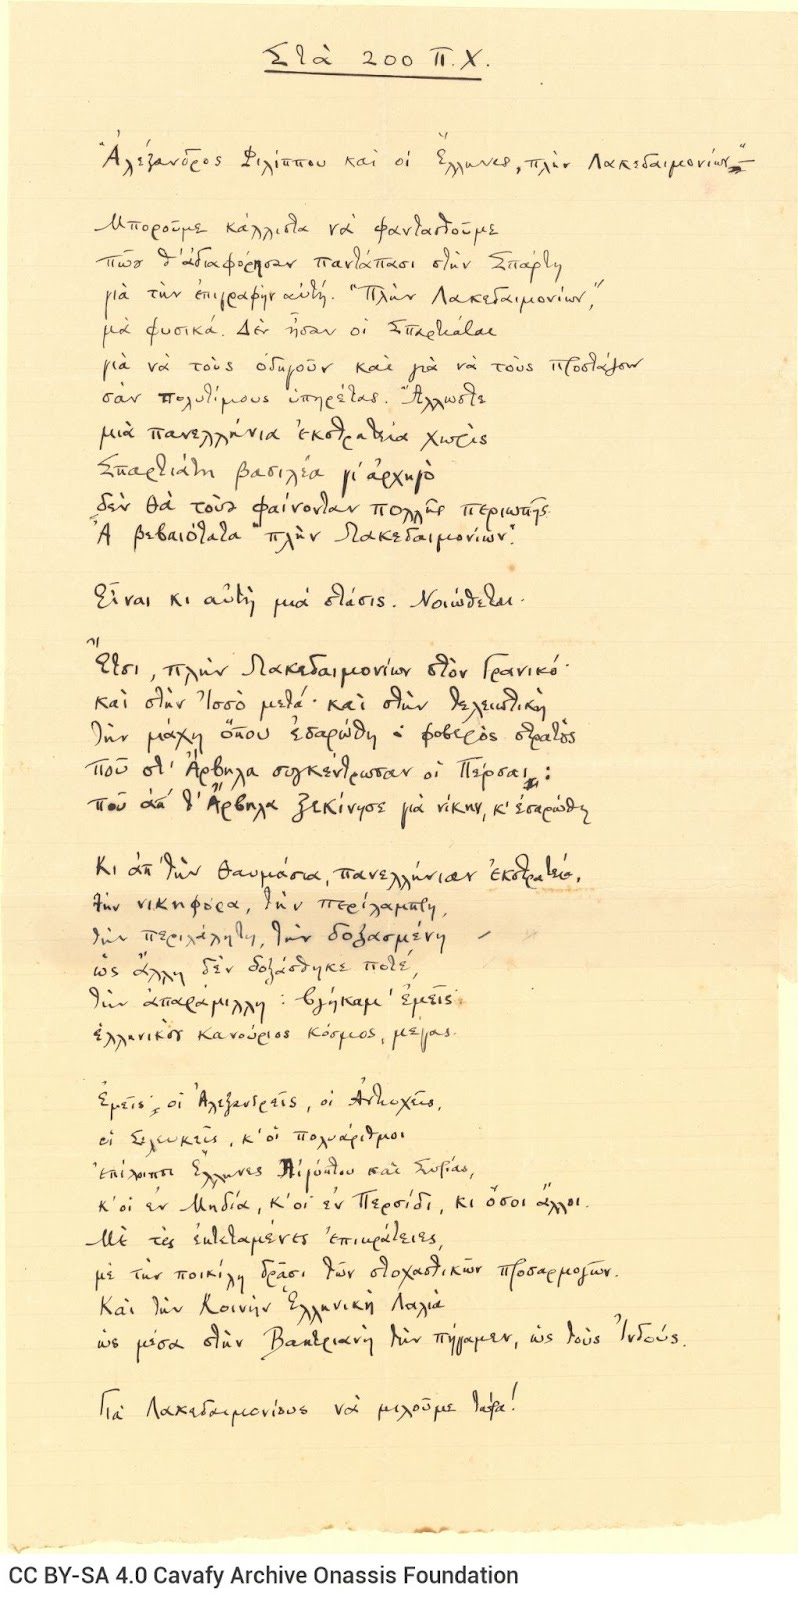 Στὰ 200 π.Χ.
"Ἀλέξανδρος Φιλίππου καὶ οἱ Ἕλληνες, πλὴν Λακεδαιμονίων—"
Μποροῦμε κάλλιστα νὰ φαντασθοῦμε
πῶς θ' ἀδιαφόρησαν παντάπασι στὴν Σπάρτη
γιὰ τὴν ἐπιγραφὴν αὐτή. "Πλὴν Λακεδαιμονίων",
μὰ φυσικά. Δὲν ἦσαν οἱ Σπαρτιᾶται
γιὰ νὰ τοὺς ὁδηγοῦν καὶ γιὰ νὰ τοὺς προστάζουν
σὰν πολυτίμους ὑπηρέτας. Ἄλλωστε
μιὰ πανελλήνια ἐκστρατεία χωρὶς
Σπαρτιάτη βασιλέα γι' ἀρχηγὸ
δὲν θὰ τοὺς φαίνονταν πολλῆς περιωπῆς.
Ἆ βεβαιότατα "πλὴν Λακεδαιμονίων".
Εἶναι κι αὐτὴ μιὰ στάσις. Νοιώθεται.
Ἔτσι, πλὴν Λακεδαιμονίων στὸν Γρανικό·
καὶ στὴν Ἰσσὸ μετά· καὶ στὴν τελειωτικὴ
τὴν μάχη ὅπου ἐσαρώθη ὁ φοβερὸς στρατὸς
ποῦ στ' Ἄρβηλα συγκέντρωσαν οἱ Πέρσαι:
ποῦ ἀπ' τ' Ἄρβηλα ξεκίνησε γιὰ νίκην, κ' ἐσαρώθη
Κι ἀπ' τὴν θαυμάσια, πανελλήνιαν ἐκστρατεία,
τὴν νικηφόρα, τὴν περίλαμπρη,
τὴν περιλάλητη, τὴν δοξασμένη
ὡς ἄλλη δὲν δοξάσθηκε ποτέ,
τὴν ἀπαράμιλλη: βγήκαμ' ἐμεῖς·
ἑλληνικὸς καινούριος κόσμος, μέγας.
Ἐμεῖς· οἱ Ἀλεξανδρεῖς, οἱ Ἀντιοχεῖς,
οἱ Σελευκεῖς, κ' οἱ πολυάριθμοι
ἐπίλοιποι Ἕλληνες Αἰγύπτου καὶ Συρίας,
κ' οἱ ἐν Μηδίᾳ, κ' οἱ ἐν Περσίδι, κι ὅσοι ἄλλοι.
Μὲ τὲς ἐκτεταμένες ἐπικράτειες,
μὲ τὴν ποικίλη δρᾶσι τῶν στοχαστικῶν προσαρμογῶν.
Καὶ τὴν Κοινὴν Ἑλληνικὴ Λαλιὰ
ὡς μέσα στὴν Βακτριανὴ τὴν πήγαμεν, ὡς τοὺς Ἰνδούς.
Γιὰ Λακεδαιμονίους νὰ μιλοῦμε τώρα!
CC BY-SA 4.0 Cavafy Archive Onassis Foundation